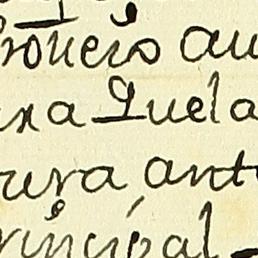 proueio au
xa Quela
ura, ant
rincipal